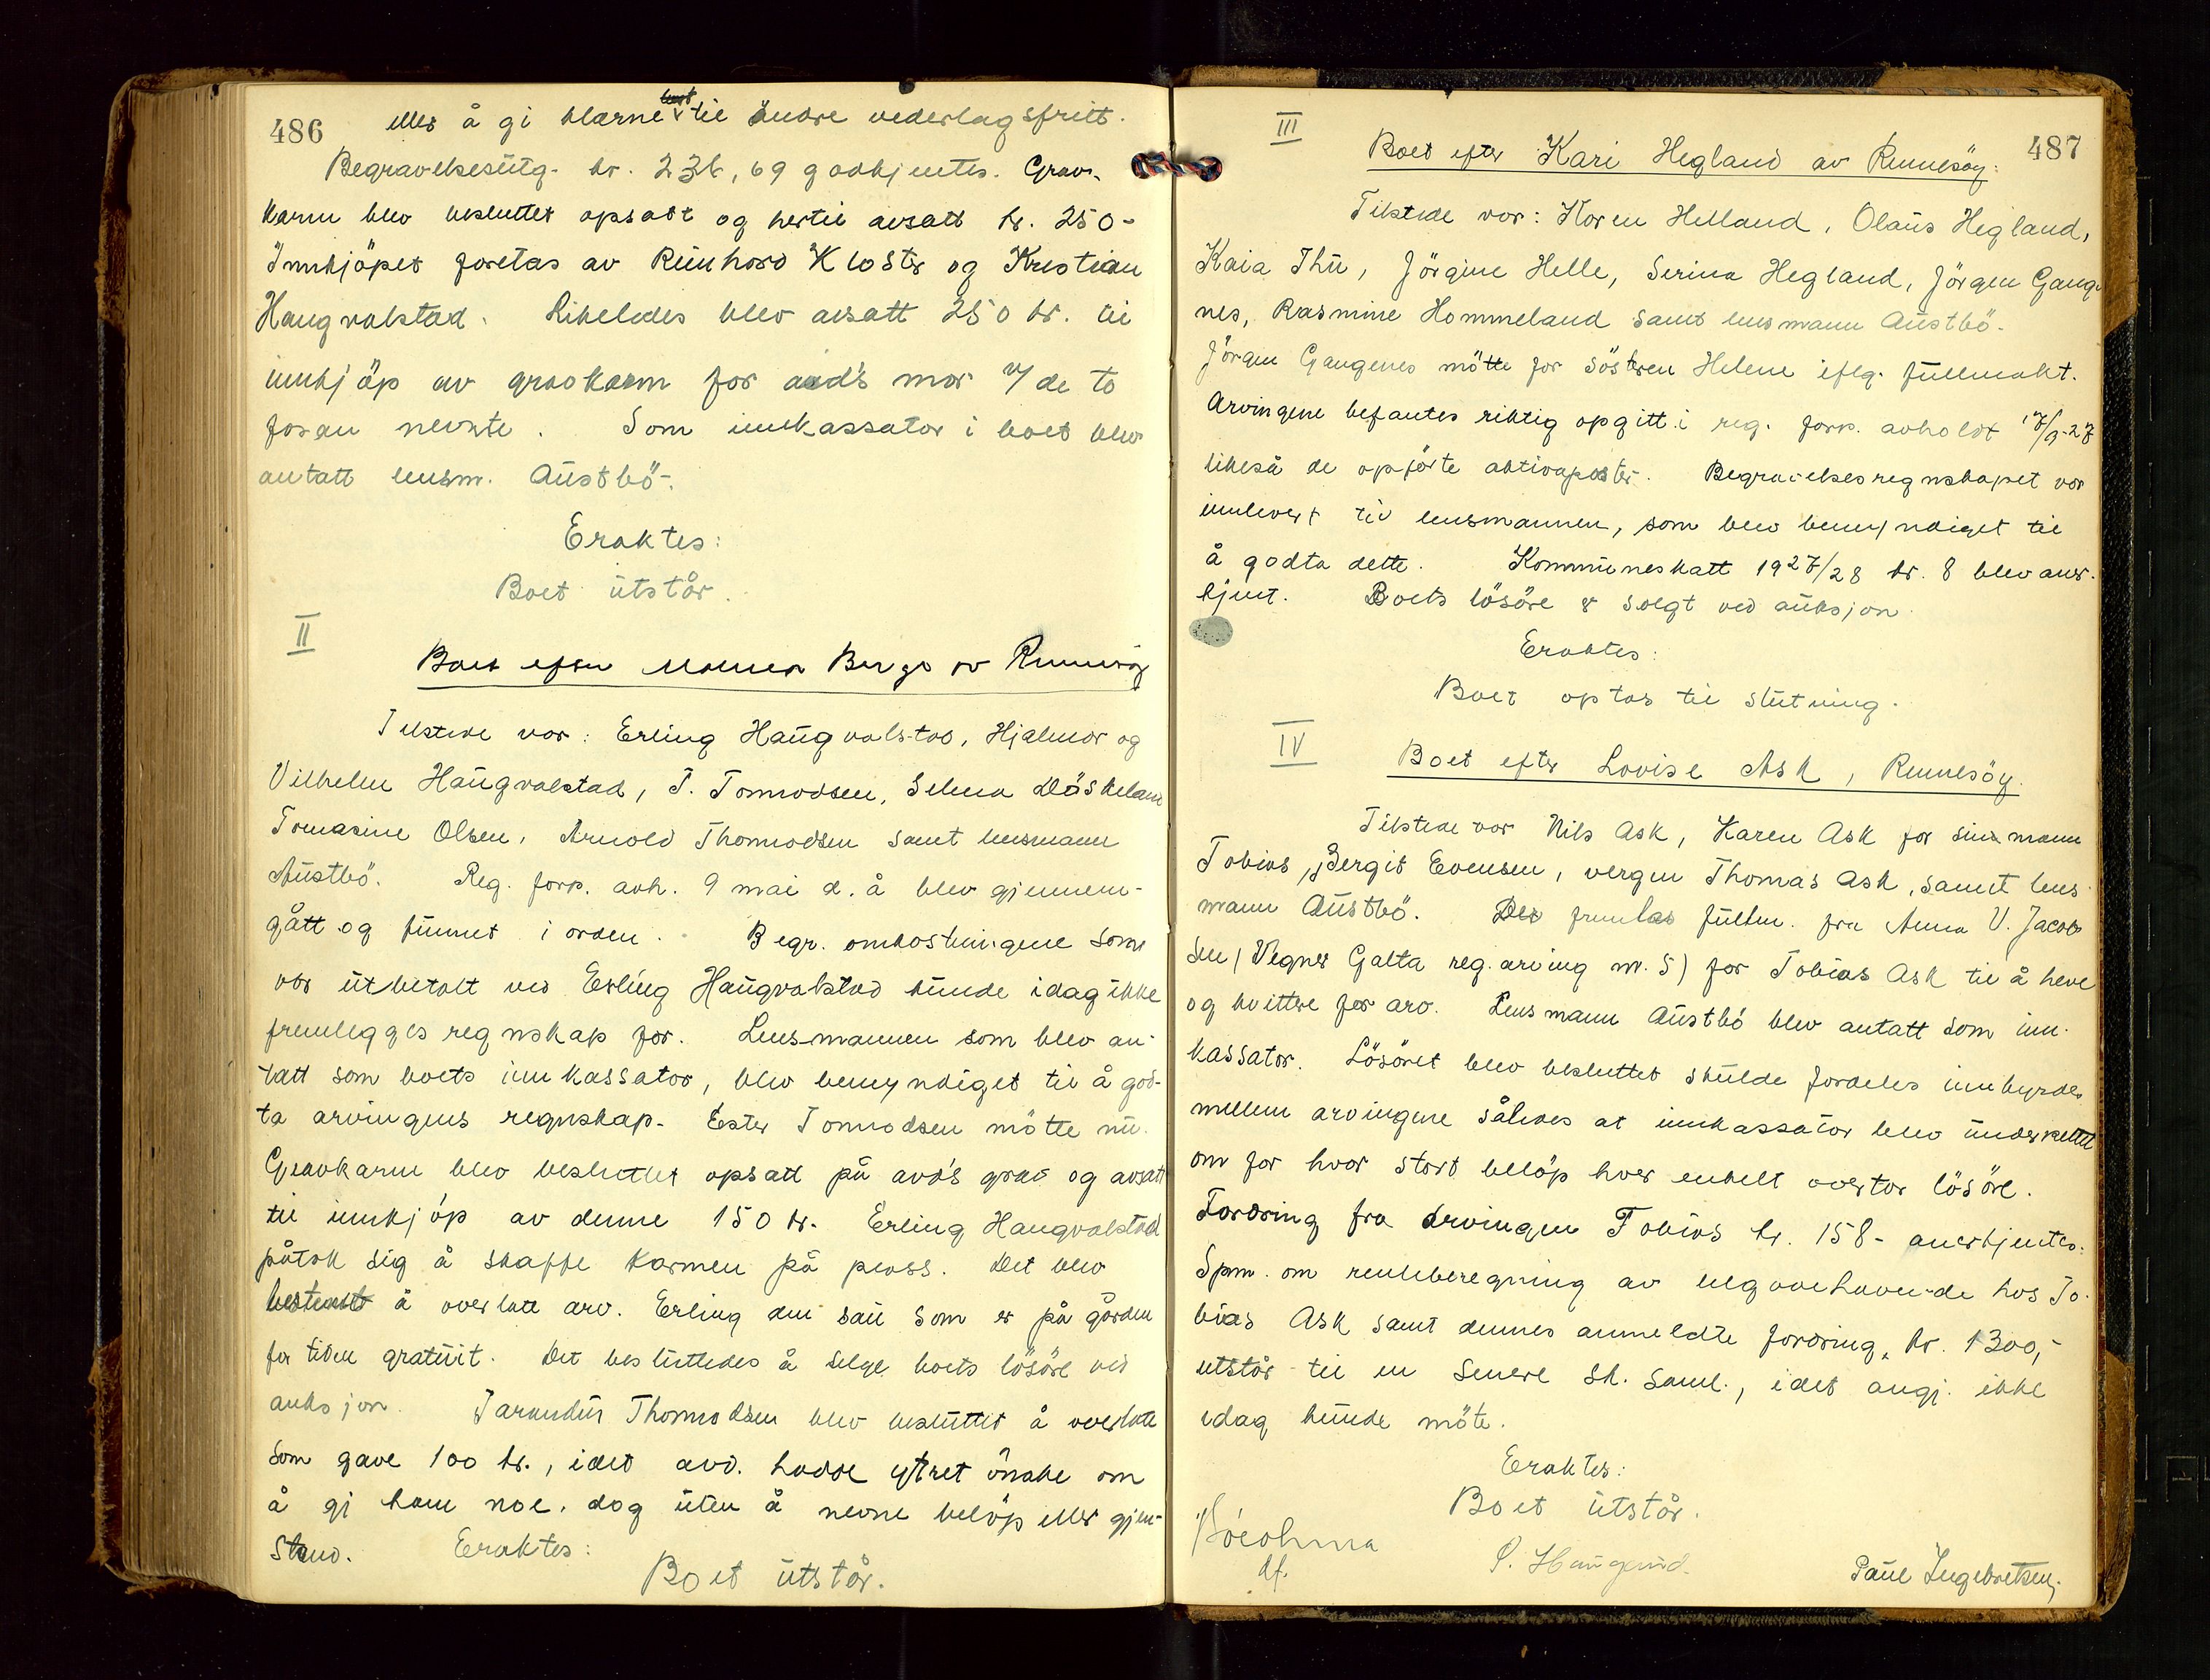 486
eller å gi klærne til andre vederlagsfritt.
Begravelsesutg. kr. 236,69 godkjentes. Grav-
karm blev besluttet opsatt og hertil avsatt kr. 250-
Innkjöpet foretas av Reinhard Kloster og Kristian
Haugvalstad. Likeledes blev avsatt 250 kr. til
innkjöp av gravkarm for avd's mor v/ de to
foran nevnte. Som innkassator i boet blev
antatt lensm. Austbö.
Eraktes:
Boet utstår.
II
Boet efter Berge av Rennesöy
Tilstede var: Erling Haugvalstad, Hjalmar og
Vilhelm Haugvalstad, T. Tormodsen, Selma Döskeland
Tomasine Olsen, Arnold Thormodsen samt lensmann
Austbö. Reg. forr. avh. 9 mai d. å blev gjennem-
gått og funnet i orden. Begr. omkostningene som
var utbetalt ved Erling Haugvalstad kunde idag ikke
fremlegges regnskap for. Lensmannen som blev an-
tatt som boets innkassator, blev bemyndiget til å god-
ta arvingens regnskap. Ester Tormodsen mötte nu.
Gravkarm blev besluttet opsatt på avd's grav og avsatt
til innkjöp av denne 150 kr. Erling Haugvalstad
påtok sig å skaffe karmen på plass. Det blev
bestemt å overlate arv. Erling den sau som er på gården
for tiden gratuit. Det besluttedes å selge boets lösöre ved
auksjon. Thormodsen blev besluttet å overlate
som gave 100 kr., idet avd. hadde ytret önske om
å gi ham noe, dog uten å nevne belöp eller gjen-
stand. Eraktes:
Boet utstår.
487
III
Boet efter Kari Hegland av Rennesöy:
Tilstede var: Karen Helland, Olaus Hegland,
Kaia Thu, Jörgine Helle, Serina Hegland, Jörgen Gange-
nes, Rasmine Hommeland samt lensmann Austbö.
Jörgen Gangenes mötte for sösteren Helene iflg. fullmakt.
Arvingene befantes riktig opgitt i reg. forr. avholdt 17/9-27
likeså de opförte aktivaposter. Begravelsesregnskapet var
innlevert til lensmannen, som blev bemyndiget til
å godta dette. Kommuneskatt 1927/28 kr. 8 blev aner-
kjent. Boets lösöre er solgt ved auksjon.
Eraktes:
Boet optas til slutning.
IV
Boet efter Lovise Ask, Rennesöy.
Tilstede var Nils Ask, Karen Ask for sin mann
Tobias, Bergit Evensen, vergen Thomas Ask, samt lens-
mann Austbö. Der fremlas fullm. fra Anna V. Jacob-
sen (Vegner Galta reg. arving nr. 5) for Tobias Ask til å heve
og kvittere for arv. Lensmann Austbö blev antatt som inn-
kassator. Lösöret blev besluttet skulde fordeles innbyrdes
mellem arvingene således at innkassator blev underrettet
om for hvor stort belöp hver enkelt overtar lösöre.
Fordring fra arvingen Tobias kr. 158- anerkjentes.
Spm. om renteberegning av tilgodehavende hos To-
bias Ask samt dennes anmeldte fordring, kr. 1300,-
utstår til en senere sk. saml., idet angj. ikke
idag kunde möte.
Eraktes:
Boet utstår.
Paul Ingebretsen